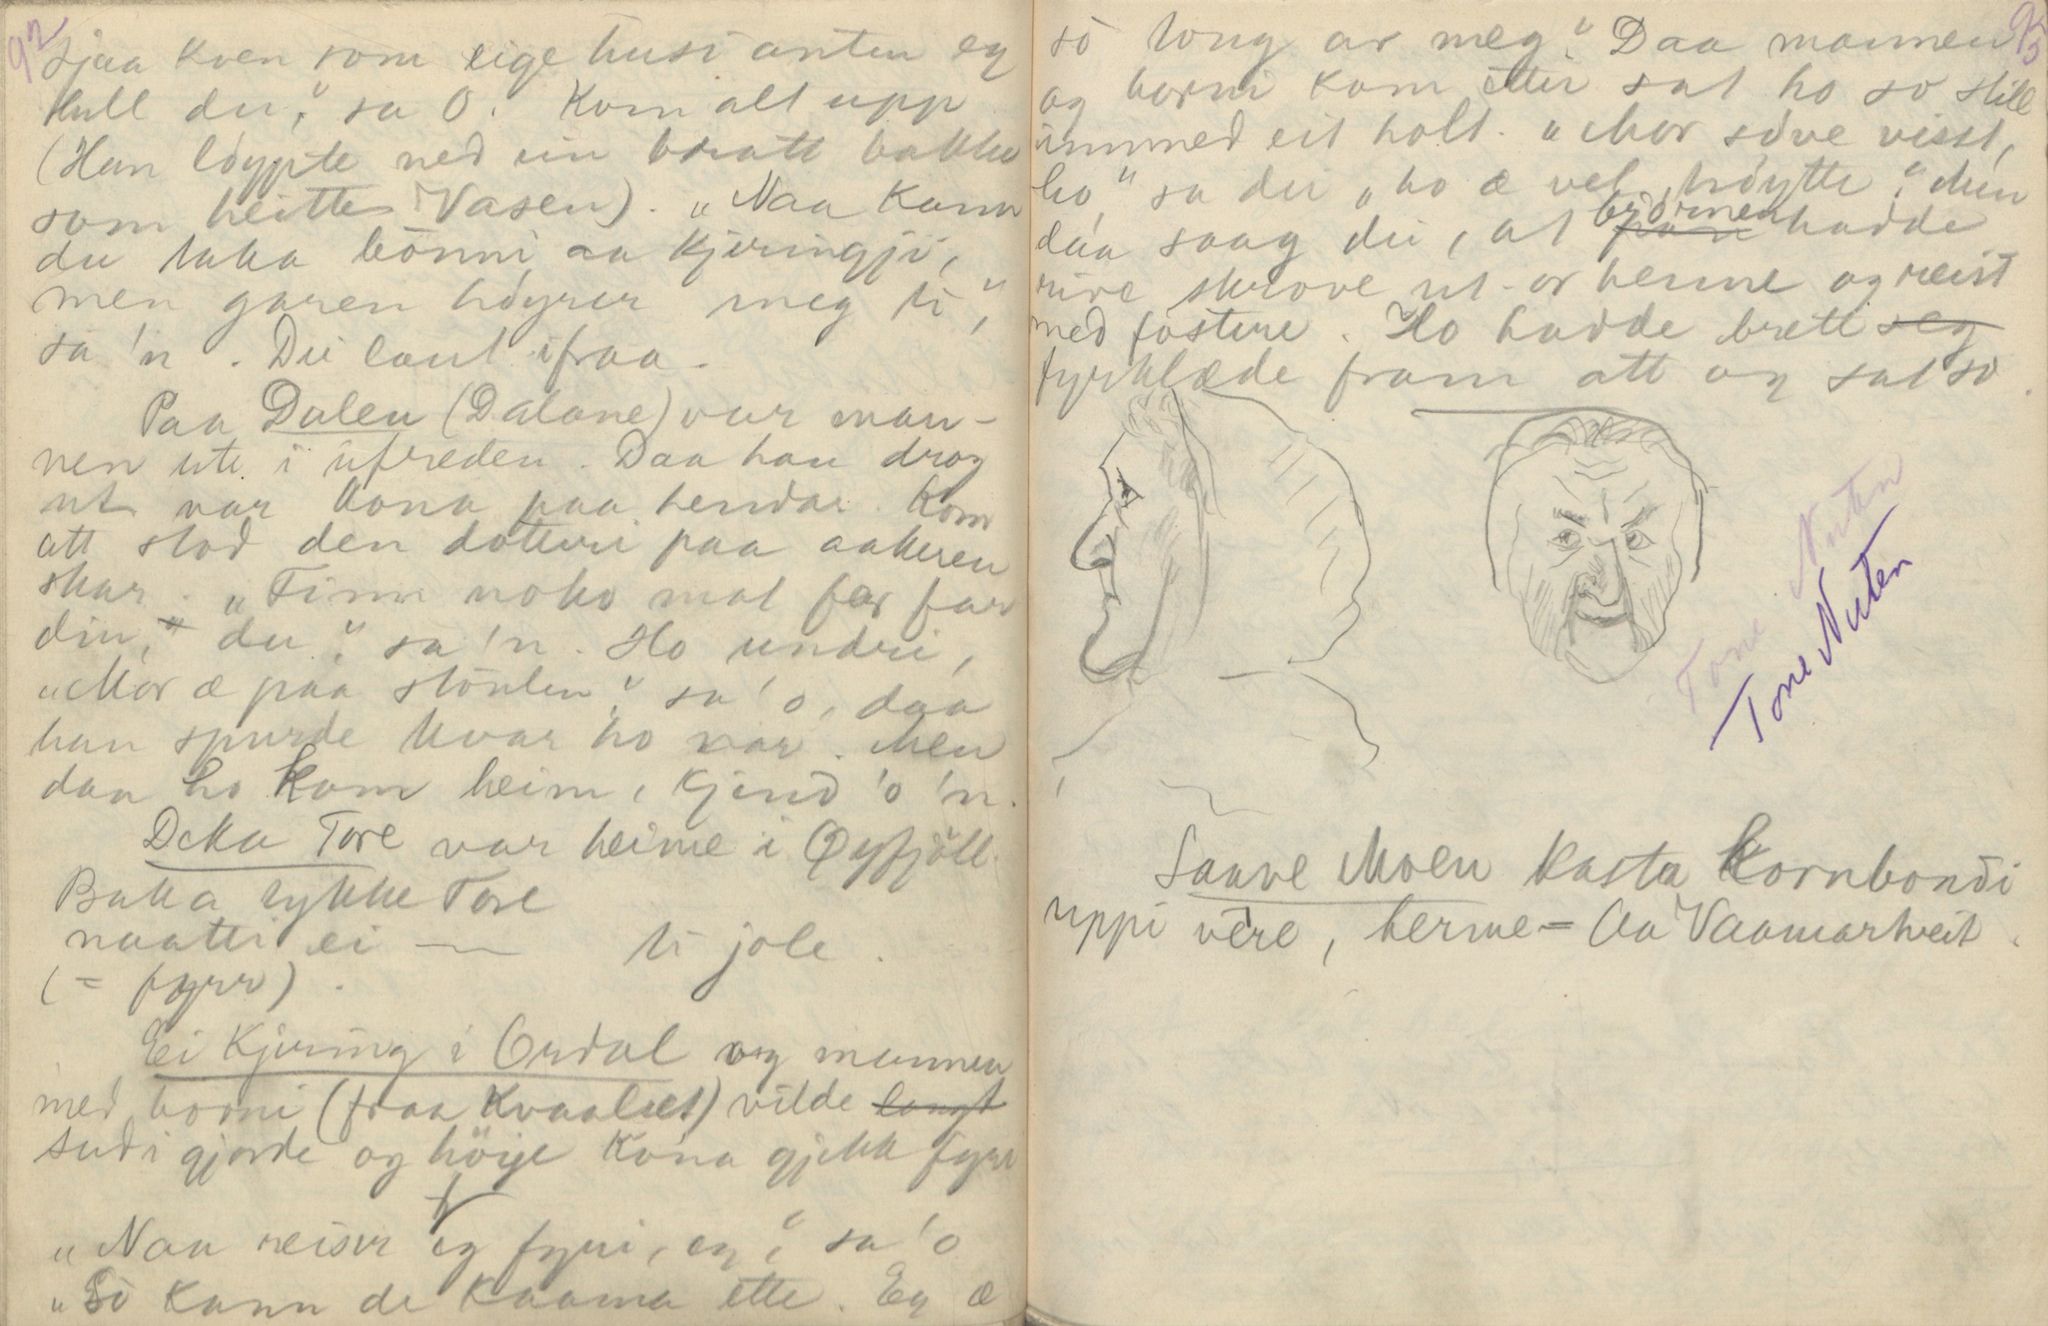 92
sjaa kven som eige husi anten eg
hell du," sa O. Kom alt upp
(Han löypte ned ein bratt bakke
som heitte Vasen). "Naa kann
du taka bönni aa kjeringji,
men garen höyrer meg ti,"
sa 'n. Dei laut ifraa.
Paa Dalen (Dalane) var man-
nen ute i ufreden. Daa han drog
ut var kona paa hendar. Kom
att stod den dotteri paa aakeren
skar. "Finn noko mat før far
din, du," sa 'n. Ho undri,
"Mor æ paa stönlen," sa 'o, daa
han spurde kvar ho var. Men
daa ho kom heim, kjend 'o 'n.
Deka Tore var heime i Öyfjöll.
Baka lykke Tore
naatti ei — ti jole.
(= fyrr).
Ei kjering i Ordal og mannen
med borni (fraa Kvaalset) vilde langt
sud i gjorde og höye kona gjekk fyrr
"Naa reiser eg fyri, eg," sa 'o
"So kann de kaama ette. Eg æ
93
so tong av meg." Daa mannen
og borni kom etter sat ho so still
innmed eit holt. "Mor söve visst,
ho," sa dei "ho æ vel tröytte." Men
daa saag dei, at björnen hadde
rive skrove ut or henne og reist
med fostere. Ho hadde brett seg
fyrklæde fram att og sat so.
Tone Nuten
Tone Nuten
Saave Moen kasta kornbondi
uppi vêre, herme = Aa Vaamartveit.